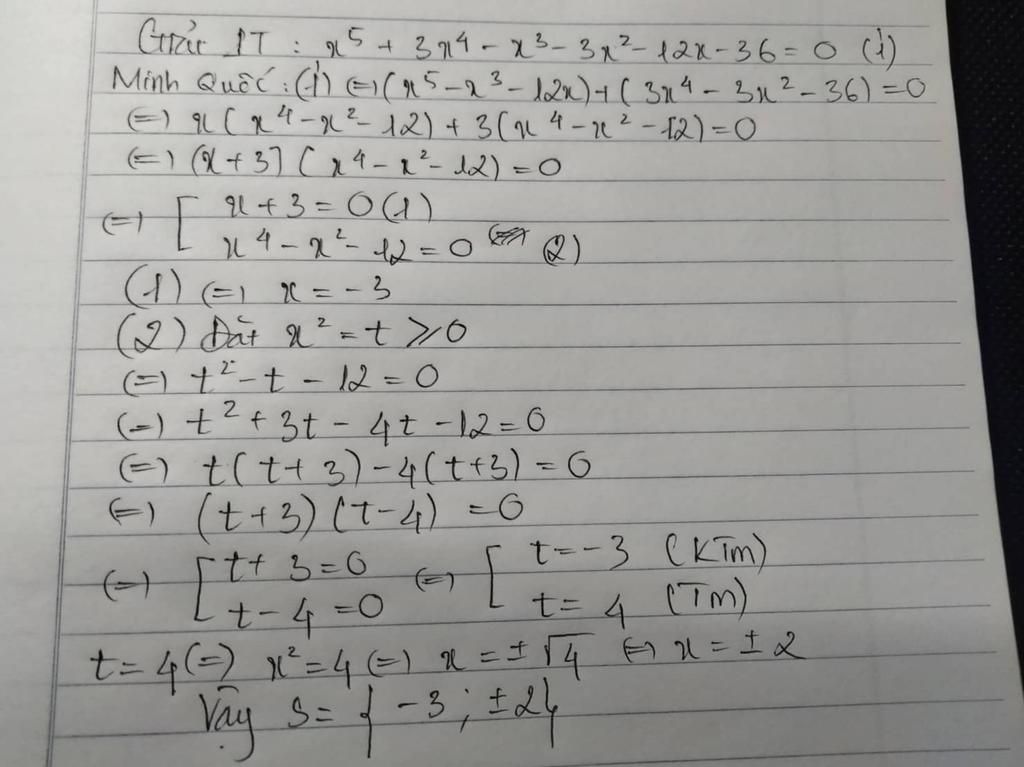 Giải PT : x⁵ + 3x⁴ - x³ - 3x² - 12x - 36 = 0 (1)
Minh Quốc : (1) (=) (x⁵ - x³ - 12x) + (3x⁴ - 3x² - 36) = 0
(=) x(x⁴ - x² - 12) + 3(x⁴ - x² - 12) = 0
(=) (x + 3)(x⁴ - x² - 12) = 0
(=) [ x + 3 = 0 (1)
x⁴ - x² - 12 = 0 (2)
(1) (=) x = -3
(2) Đặt x² = t ⩾ 0
(=) t² - t - 12 = 0
(=) t² + 3t - 4t - 12 = 0
(=) t(t + 3) - 4(t + 3) = 0
(=) (t + 3)(t - 4) = 0
(=) [ t + 3 = 0 (=) [ t = -3 (KTm)
t - 4 = 0 t = 4 (Tm)
t = 4 (=) x² = 4 (=) x = ±√4 (=) x = ± 2
Vậy S = { -3 ; ±2}